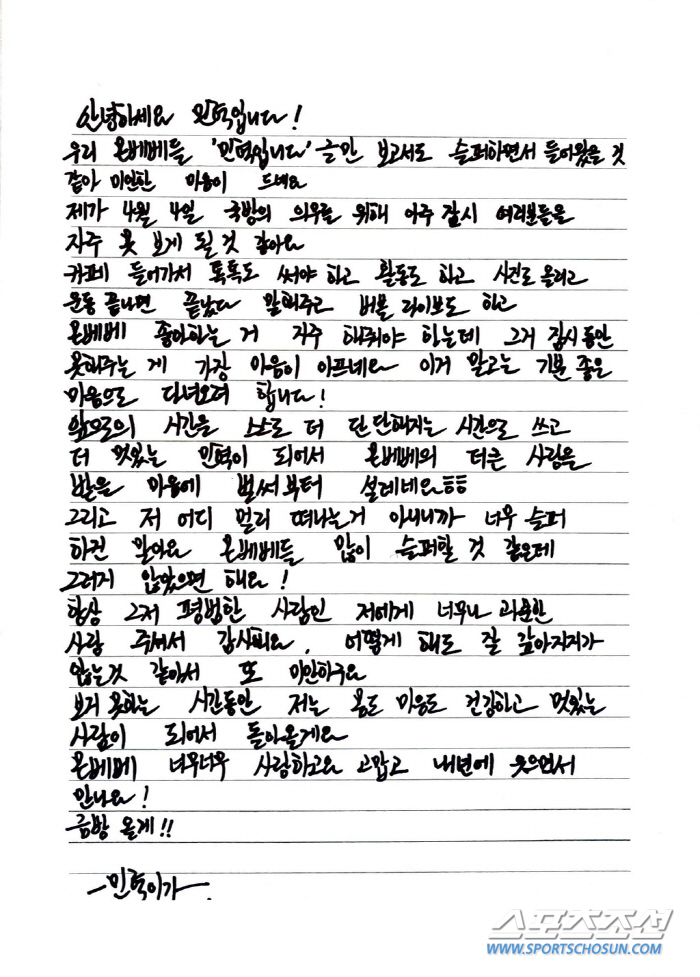 안녕하세요 민혁입니다!
우리 몬베베들 '민혁입니다' 글만 보고서도 슬퍼하면서 들어왔을 것
같아 미안한 마음이 드네요
제가 4월 4일 국방의 의무를 위해 아주 잠시 여러분들을
자주 못 보게 될 것 같아요
카페 들어가서 톡톡도 써야 하고 활동도 하고 사진도 올리고
운동 끝나면 끝났다 말해주고 버블 라이브도 하고
몬베베 좋아하는 거 자주 해줘야 하는데 그거 잠시동안
못해주는 게 가장 마음이 아프네요 이거 말고는 기분 좋은
마음으로 다녀오려 합니다!
앞으로의 시간을 스스로 더 단단해지는 시간으로 쓰고
더 멋있는 민혁이 되어서 몬베베의 더큰 사랑을
받을 마음에 벌써부터 설레네요ㅎㅎ
그리고 저 어디 멀리 떠나는거 아니니까 너무 슬퍼
하진 말아요 몬베베들 많이 슬퍼할 것 같은데
그러지 않았으면 해요!
항상 그저 평범한 사람인 저에게 너무나 과분한
사랑 주셔서 감사해요, 어떻게 해도 잘 갚아지지가
않는것 같아서 또 미안하구요
보지 못하는 시간동안 저는 몸도 마음도 건강하고 멋있는
사람이 되어서 돌아올게요
몬베베 너무너무 사랑하고요 고맙고 내년에 웃으면서
만나요!
금방 올게!!
-민혁이가-.
스포츠조선
WWW.SPORTSCHOSUN.COM